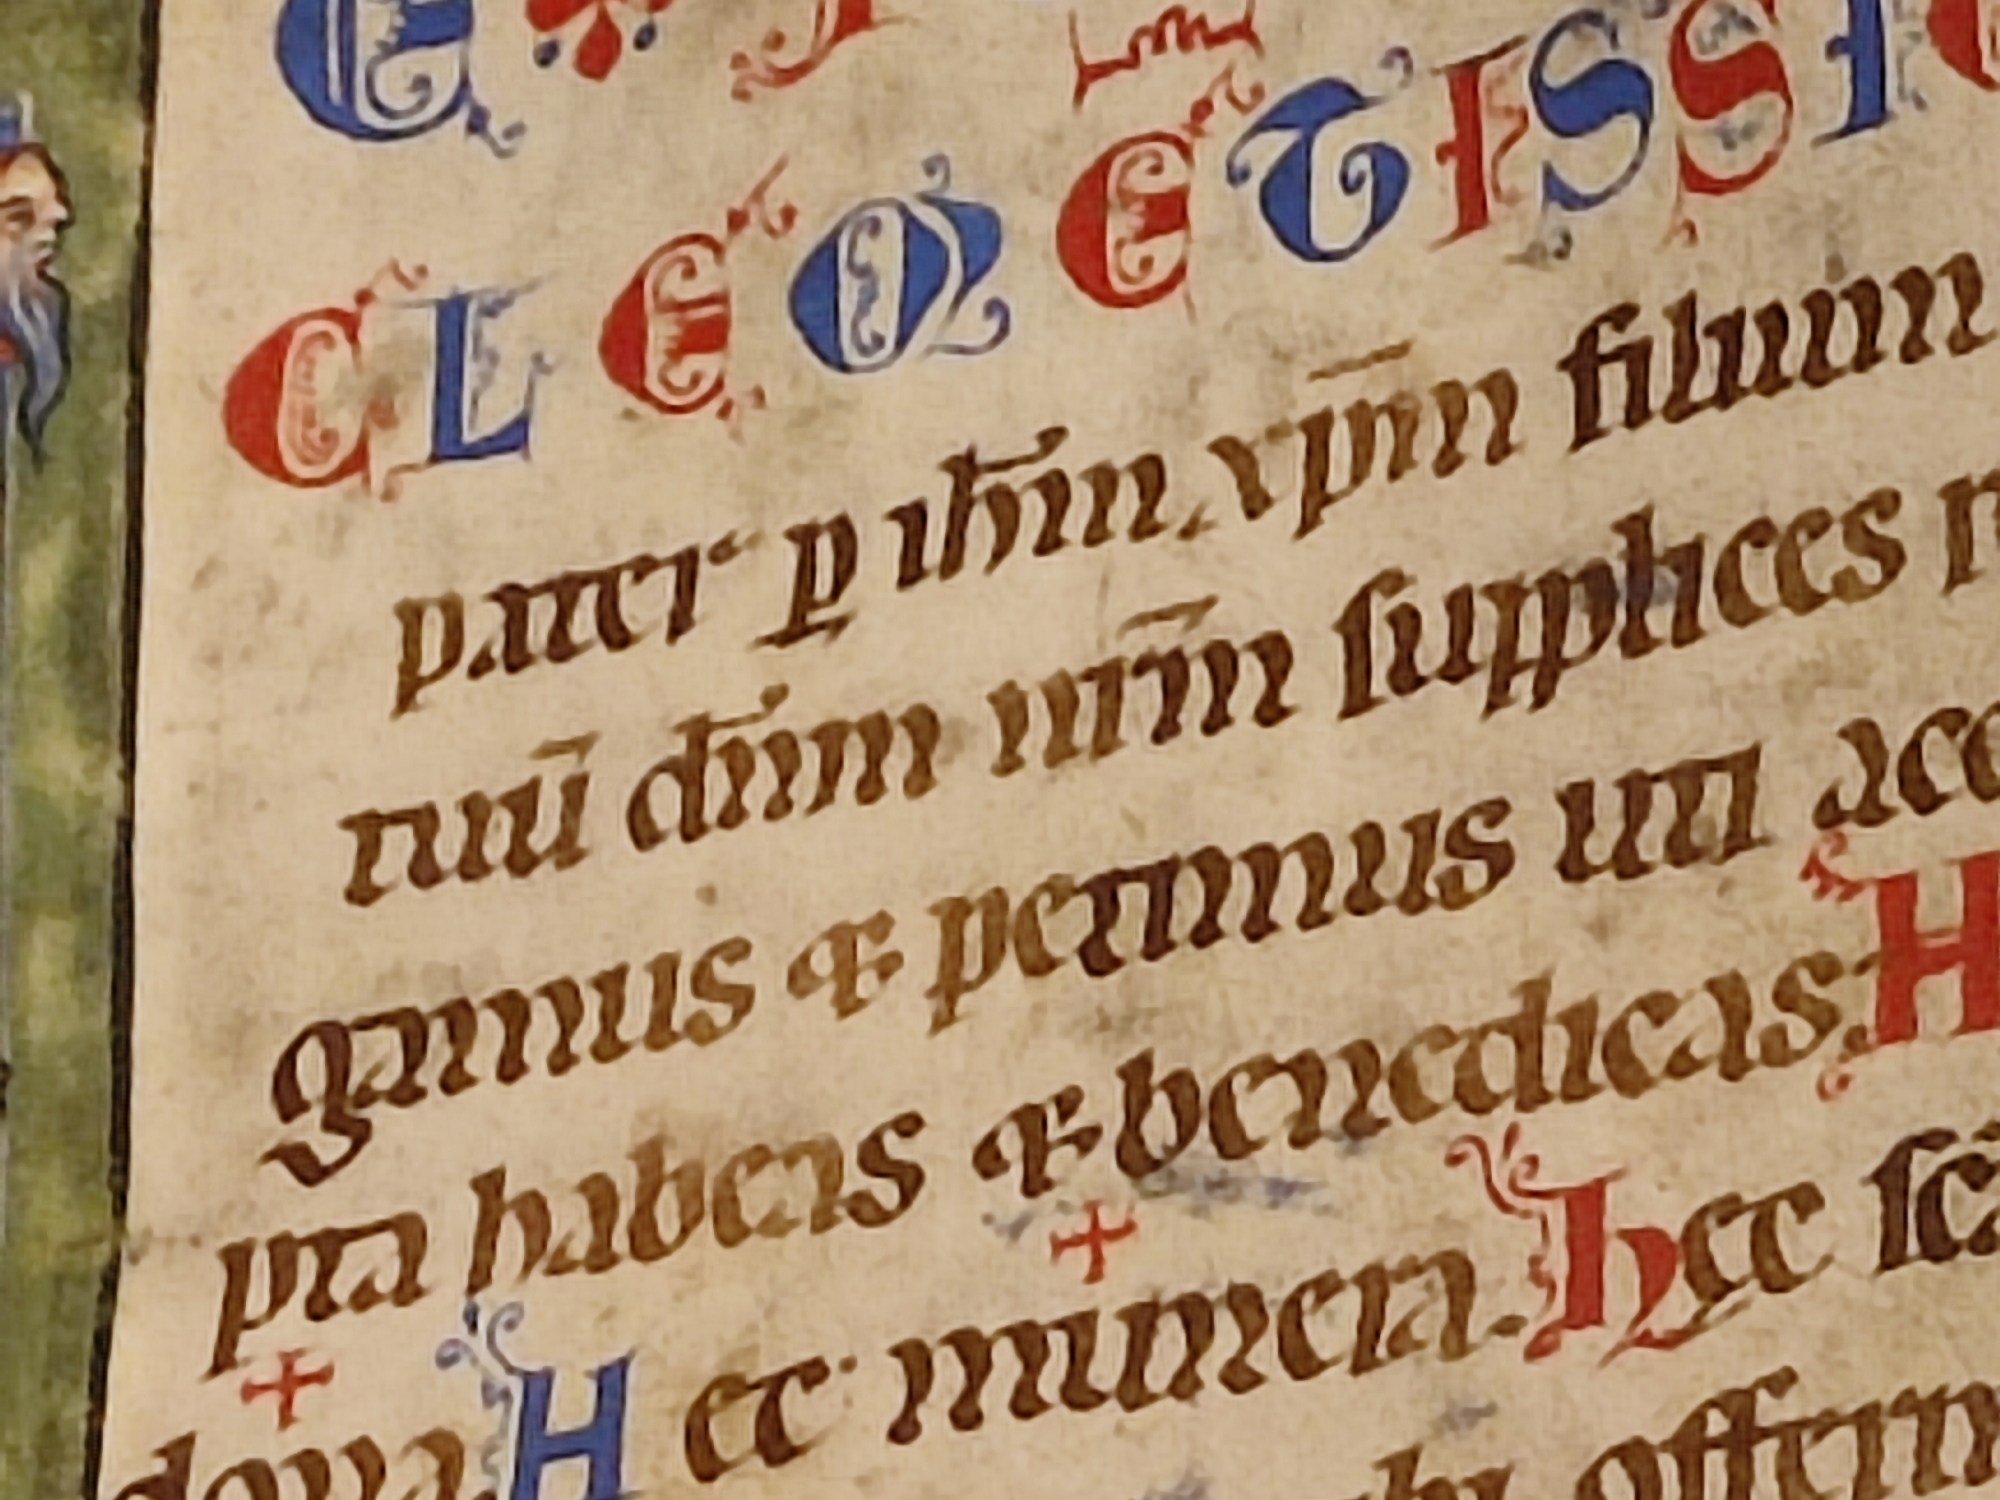 CLEMETISSI
pater p ihm. xpm filium
tuū dnm nrm supplices
gamus & petimus uti acce
pta habeas & benedicas: H
dona H ec munera. Hec sca
offerim